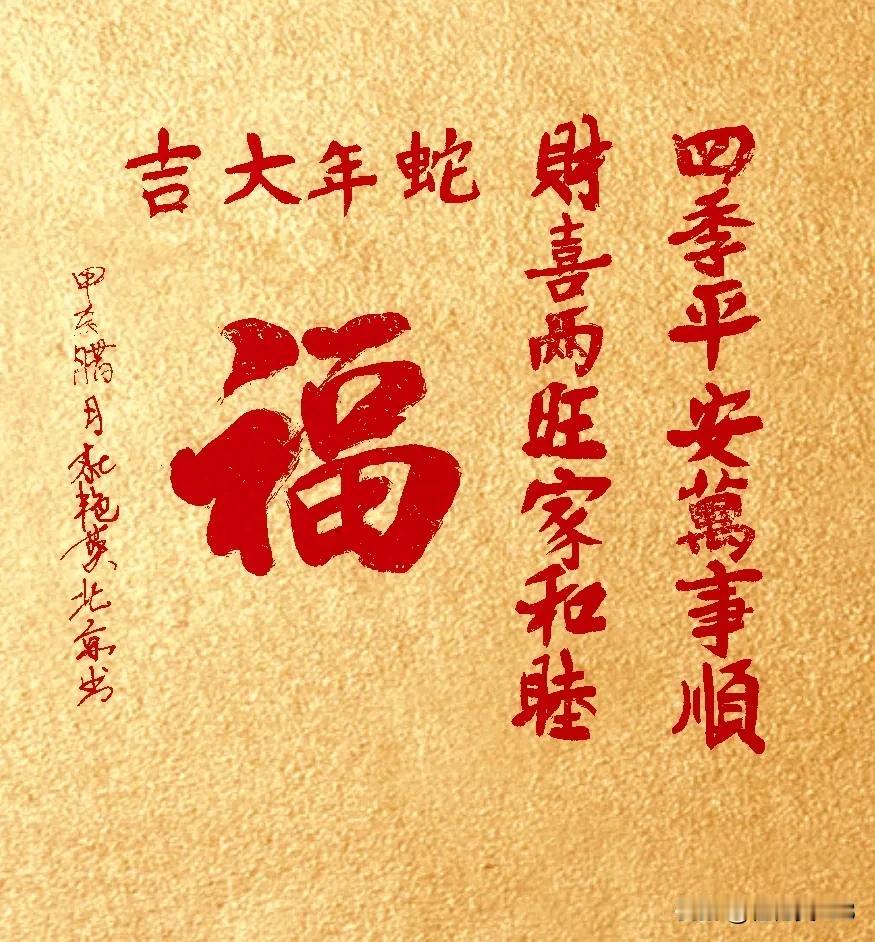 四季平安萬事順
財喜两旺家和睦
蛇年大吉
福
甲辰腊月 艳英北京书